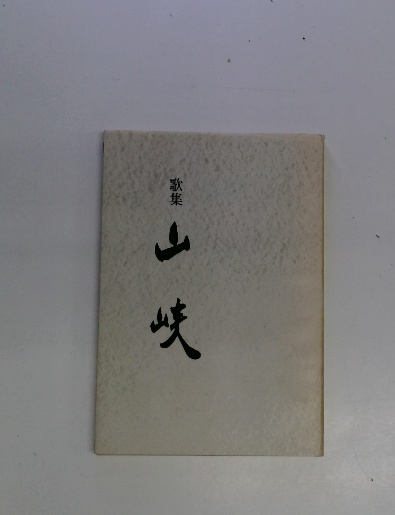 歌集
山峡